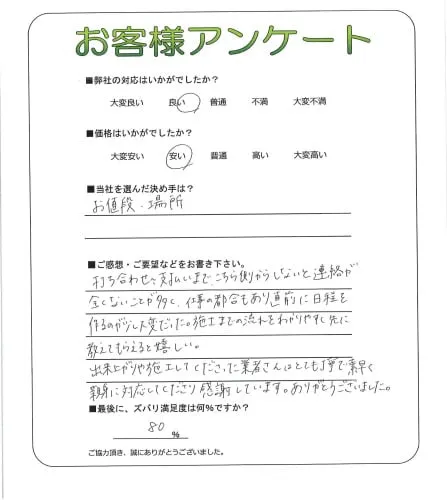 お客様アンケート
■弊社の対応はいかがでしたか?
大変良い 良い 普通 不満 大変不満
■価格はいかがでしたか?
大変安い 安い 普通 高い 大変高い
■当社を選んだ決め手は?
お値段、場所
■ご感想・ご要望などをお書き下さい。
打ち合わせ、支払いまで、こちら側からしないと連絡が
全くないことが多く、仕事の都合もあり直前に日程を
作るのが少し大変だった。施工までの流れをわかりやすく先に
教えてもらえると嬉しい。
出来上がりや施工してくださった業者さんはとても丁寧で素早く
親身に対応してくださり感謝しています。ありがとうございました。
■最後に、ズバリ満足度は何%ですか?
80 %
ご協力頂き、誠にありがとうございました。